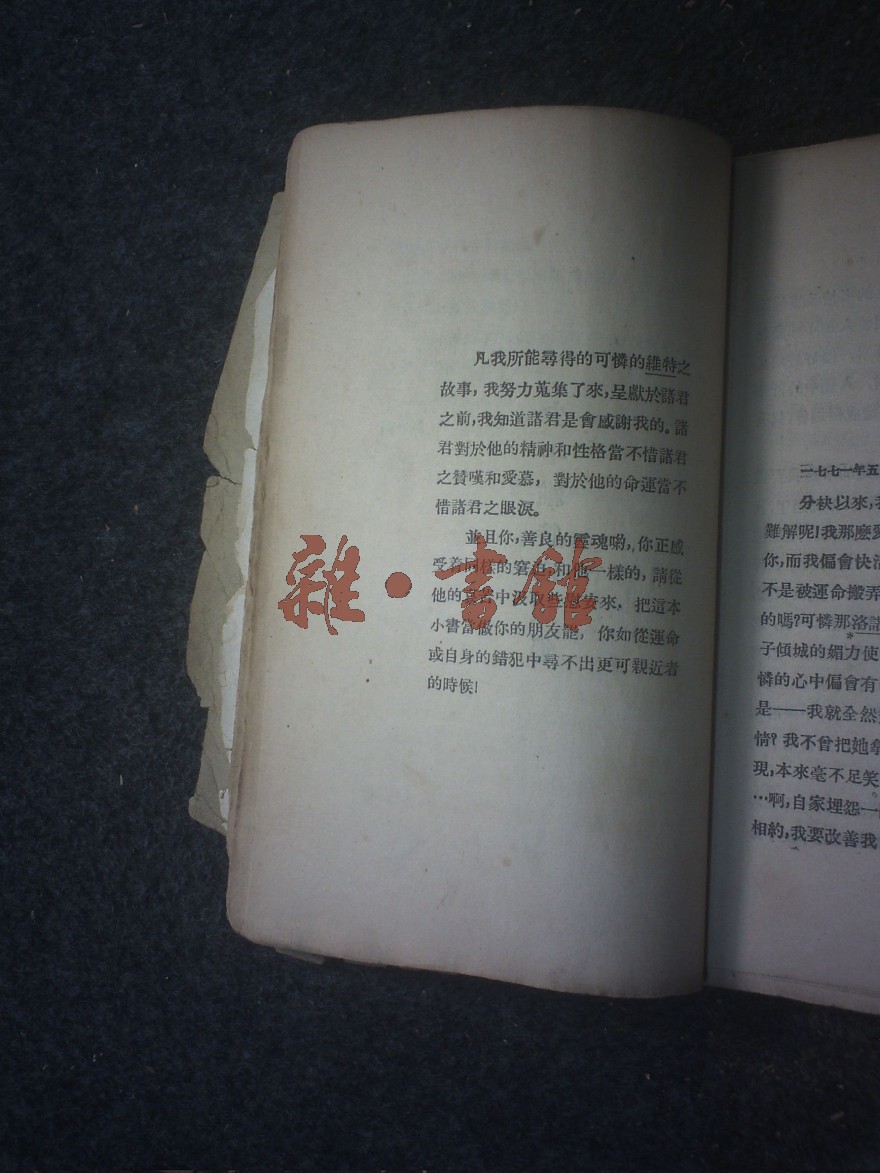 凡我所能尋得的可憐的維特之
故事，我努力蒐集了來，呈獻於諸君
之前，我知道諸君是會感謝我的。諸
君對於他的精神和性格當不惜諸君
之贊嘆和愛慕，對於他的命運當不
惜諸君之眼淚。
並且你，善良的靈魂喲，你正感
受着同樣的窘迫，和他一樣的，請從
他的哀苦中汲取些慰安來，把這本
小書當做你的朋友罷，你如從運命
或自身的錯犯中尋不出更可親近者
的時候！
雜·書館
一七七一年五
分袂以來，我
難解呢！我那麽愛
你，而我偏會快活
不是被運命搬弄
的嗎？可憐那洛諾
子傾城的媚力使
憐的心中偏會有
是——我就全然
情？我不曾把她拿
現，本來毫不足笑
…啊，自家埋怨一
相約，我要改善我